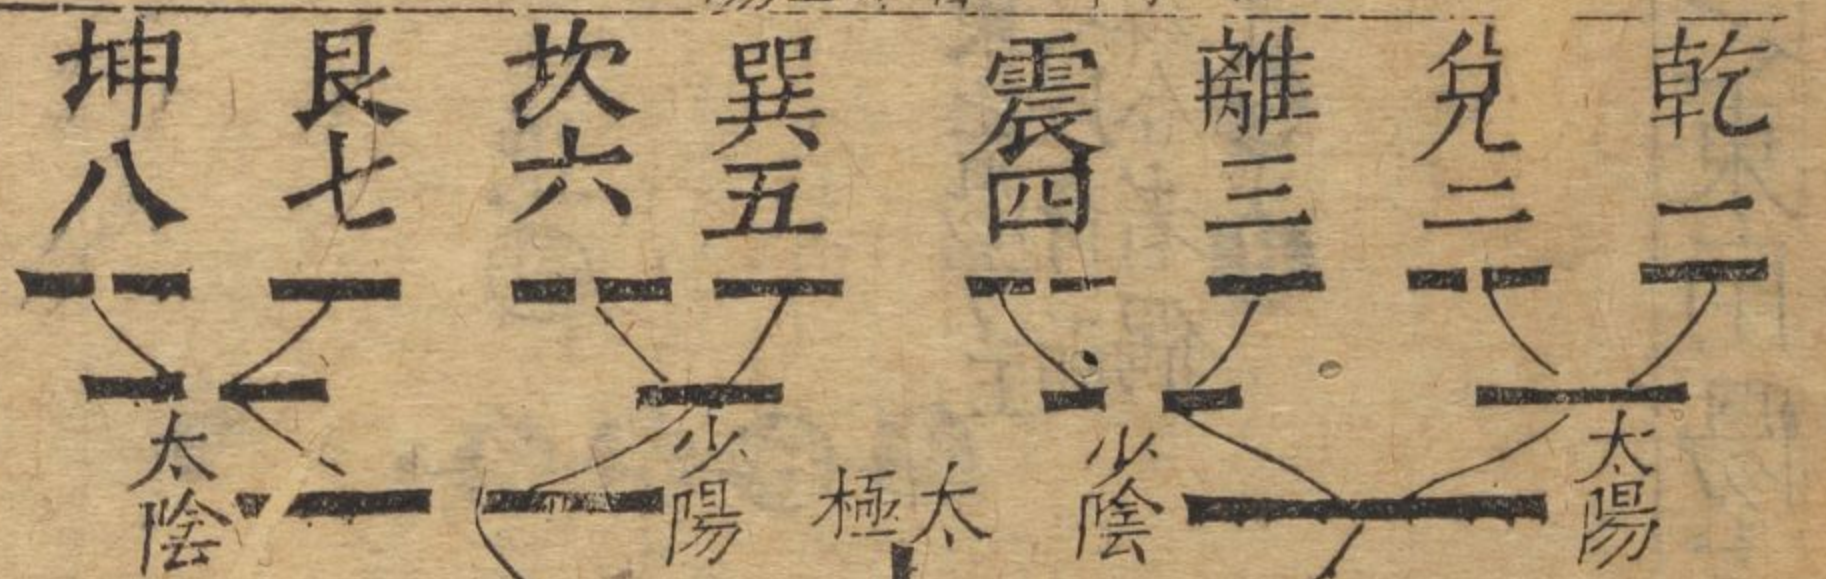 乾一
兌二
離三
震四
巽五
坎六
艮七
坤八
太陽
少陰
太極
少陽
太陰